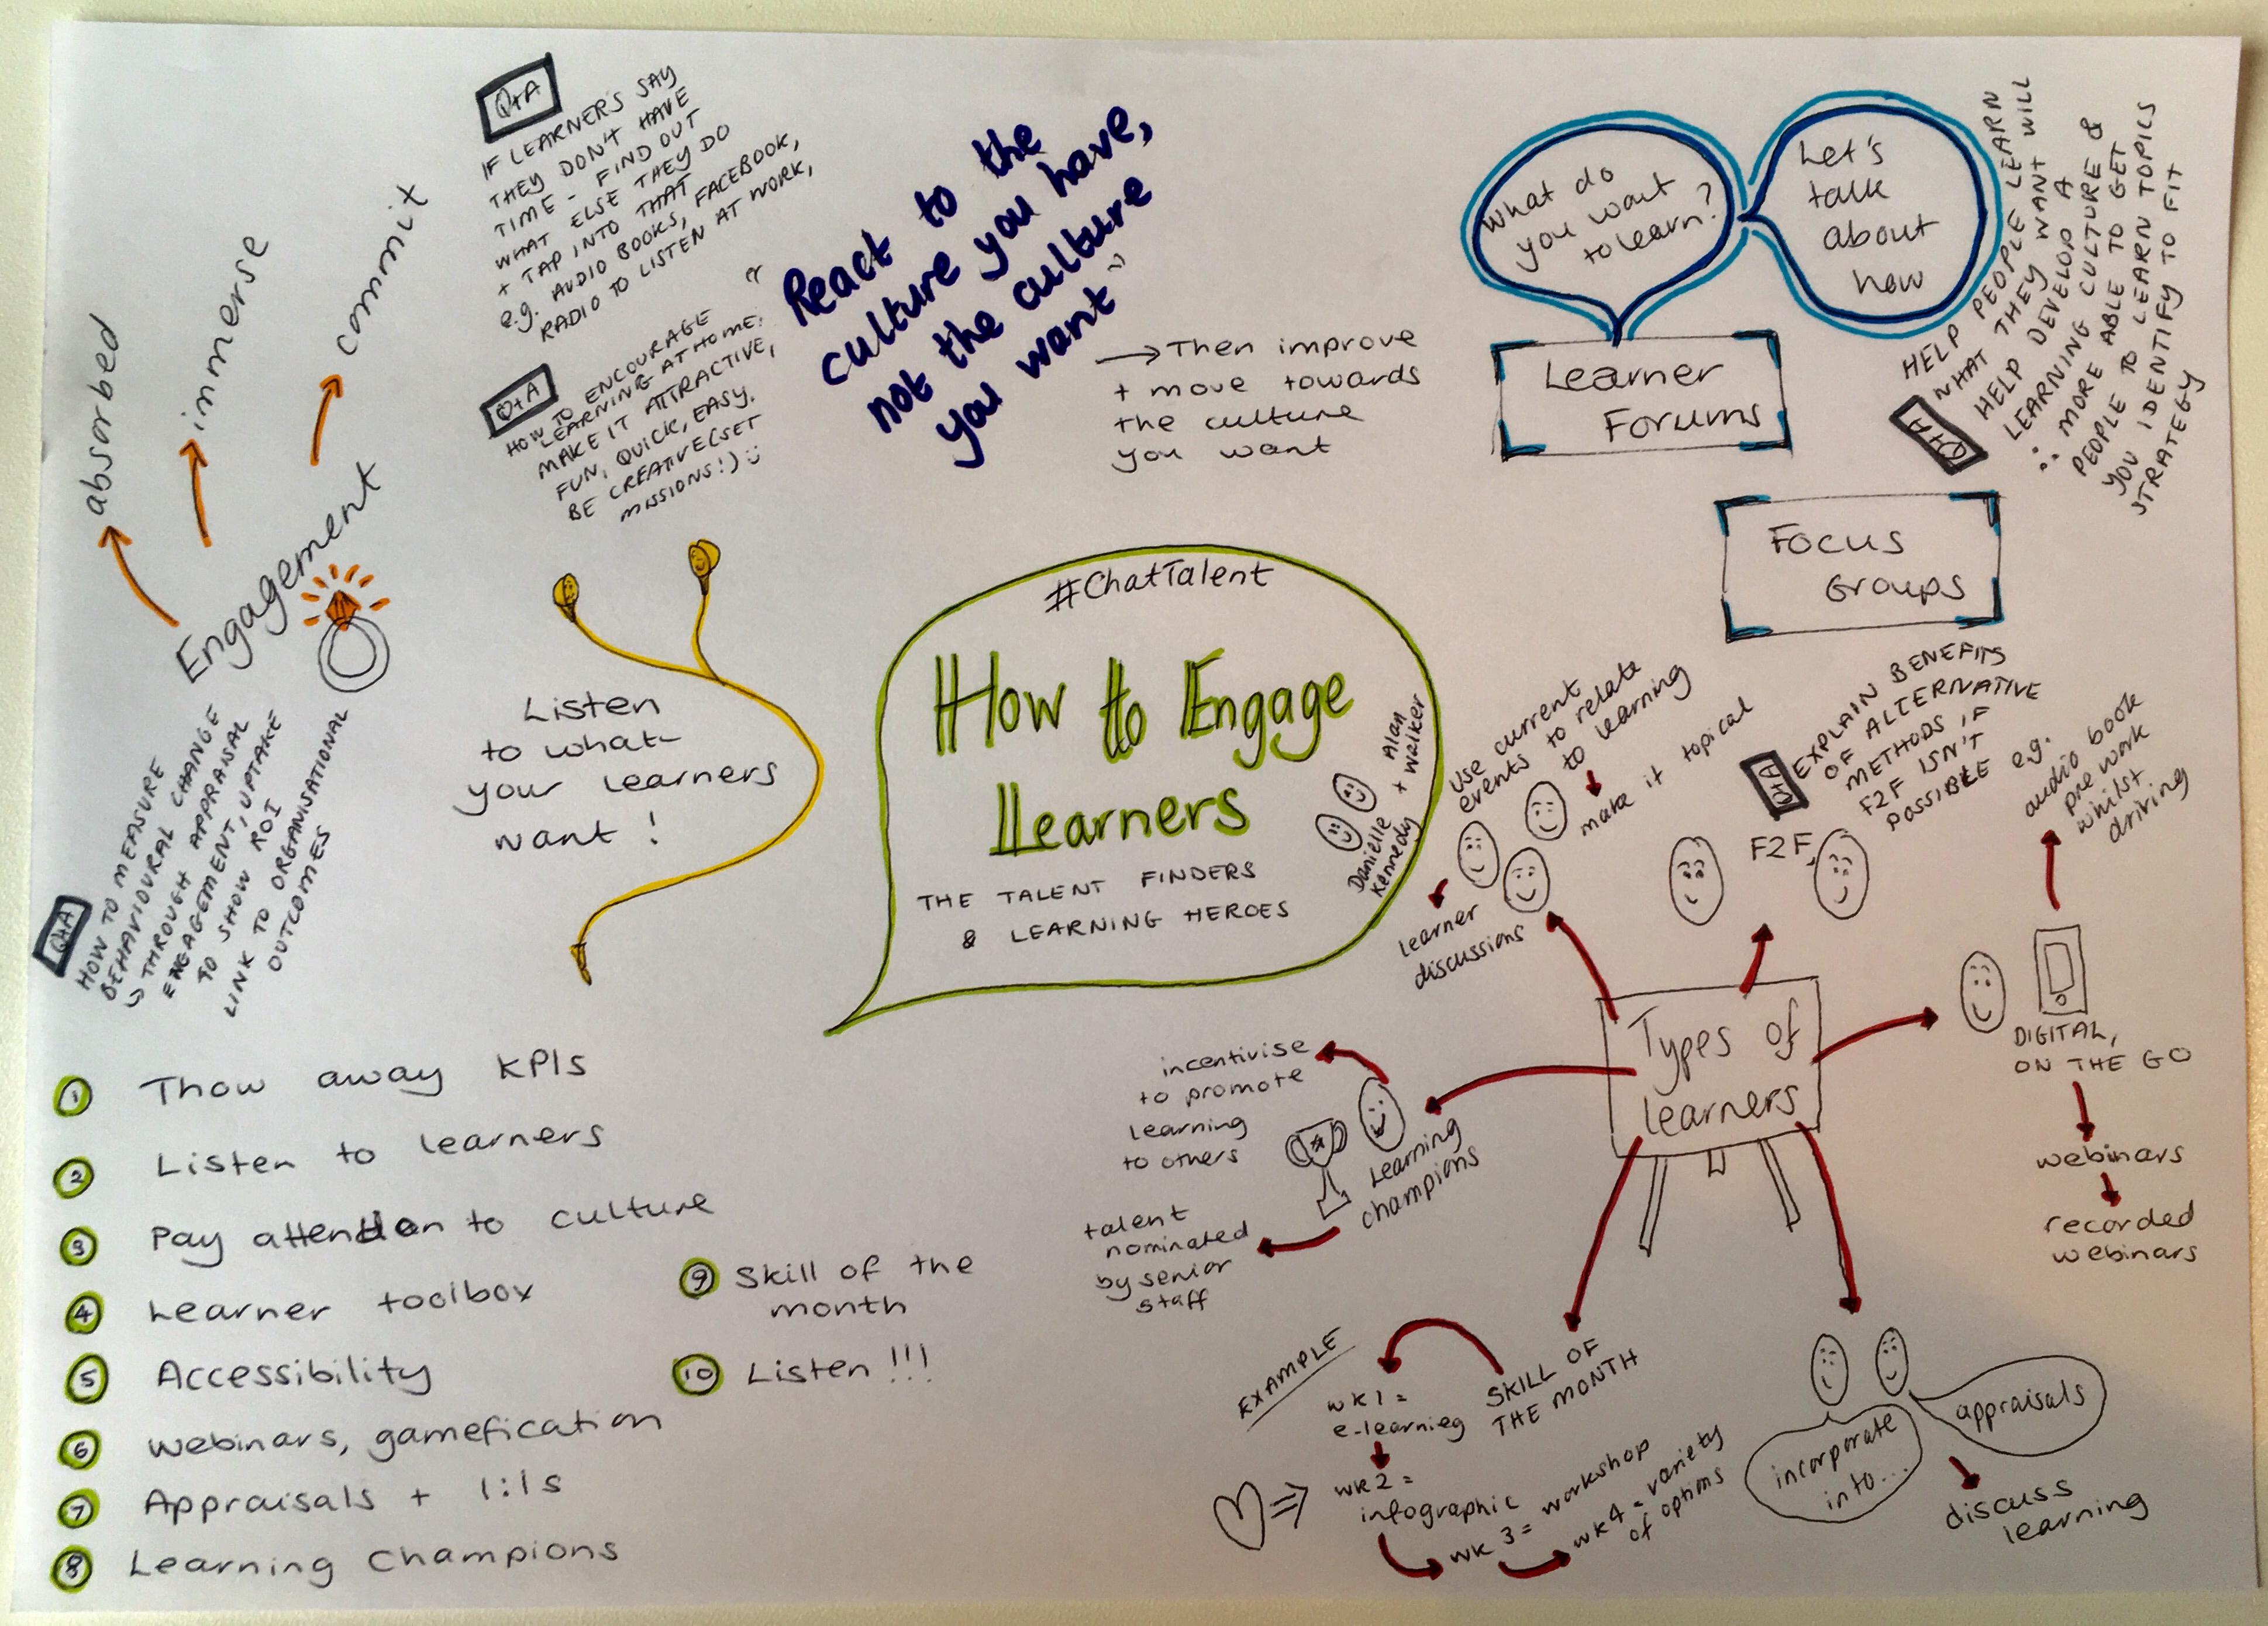 Q+A
IF LEARNERS SAY
THEY DON'T HAVE
TIME - FIND OUT
WHAT ELSE THEY DO
+ TAP INTO THAT
e.g. AUDIO BOOKS, FACEBOOK,
RADIO TO LISTEN AT WORK,
Q+A
HOW TO ENCOURAGE
LEARNING AT HOME:
MAKE IT ATTRACTIVE,
FUN, QUICK, EASY.
BE CREATIVE (SET
MISSIONS!)
absorbed
immerse
commit
Engagement
"React to the
culture you have,
not the culture
you want"
→ Then improve
+ move towards
the culture
you want
What do
you want
to learn?
Let's
talk
about
how
Learner
Forums
Focus
Groups
Q+A
HELP PEOPLE LEARN
WHAT THEY WANT WILL
HELP DEVELOP A
LEARNING CULTURE &
∴ MORE ABLE TO GET
PEOPLE TO LEARN TOPICS
YOU IDENTIFY TO FIT
STRATEGY
Q+A
HOW TO MEASURE
BEHAVIOURAL CHANGE
↳ THROUGH APPRAISAL
ENGAGEMENT, UPTAKE
TO SHOW ROI
LINK TO ORGANISATIONAL
OUTCOMES
Listen
to what
your learners
want!
#ChatTalent
How to Engage
Learners
THE TALENT FINDERS
& LEARNING HEROES
Danielle
Kennedy
+
Alan
Walker
use current
events to relate
to learning
make it topical
learner
discussions
F2F
Q+A
EXPLAIN BENEFITS
OF ALTERNATIVE
METHODS IF
F2F ISN'T
POSSIBLE e.g.
audio book
pre work
whilst
driving
DIGITAL,
ON THE GO
webinars
recorded
webinars
Types of
Learners
incentivise
to promote
learning
to others
Learning
champions
talent
nominated
by senior
staff
SKILL OF
THE MONTH
EXAMPLE
wk1 =
e-learnieg
wk2 =
infographic
wk 3 = workshop
wk4 = variety
of options
incorporate
into...
appraisals
discuss
learning
1 Thow away KPIs
2 Listen to learners
3 Pay attention to culture
4 Learner toolbox
5 Accessibility
6 Webinars, gamefication
7 Appraisals + 1:1s
8 Learning Champions
9 Skill of the
month
10 Listen!!!